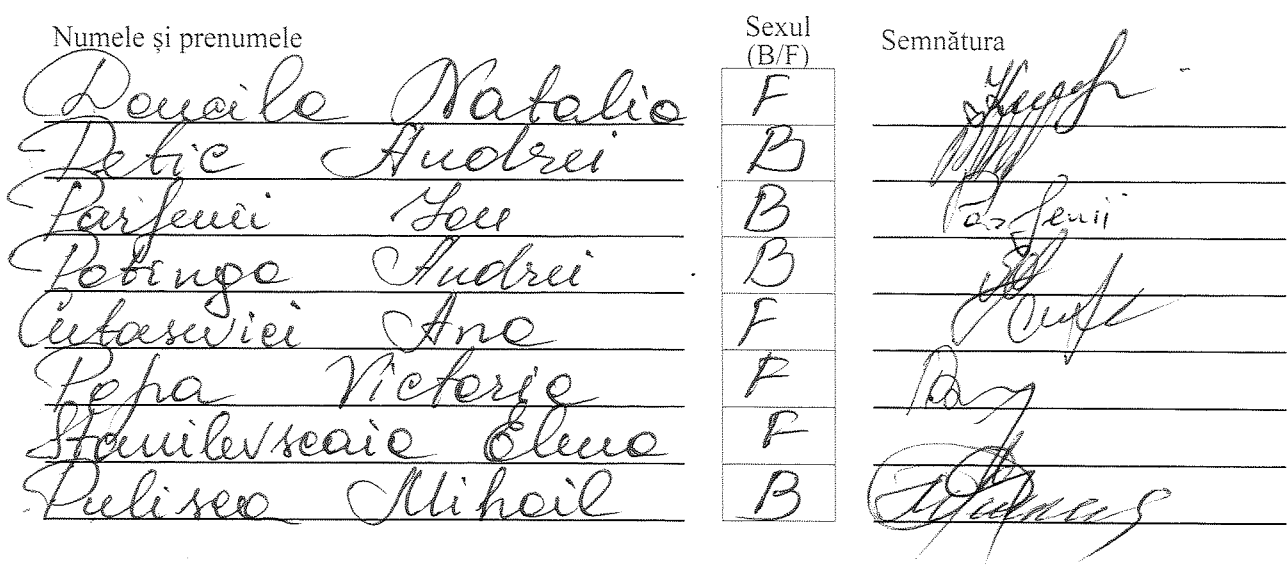 Numele și prenumele Sexul (B/F) Semnătura
Natalia F
Petic Andrei B
Parfenii Ion B Parfenii
Potinga Andrei B
Cutasevici Ana F
Popa Victoria F
Stanilevscaia Elena F
Pulisca Mihail B